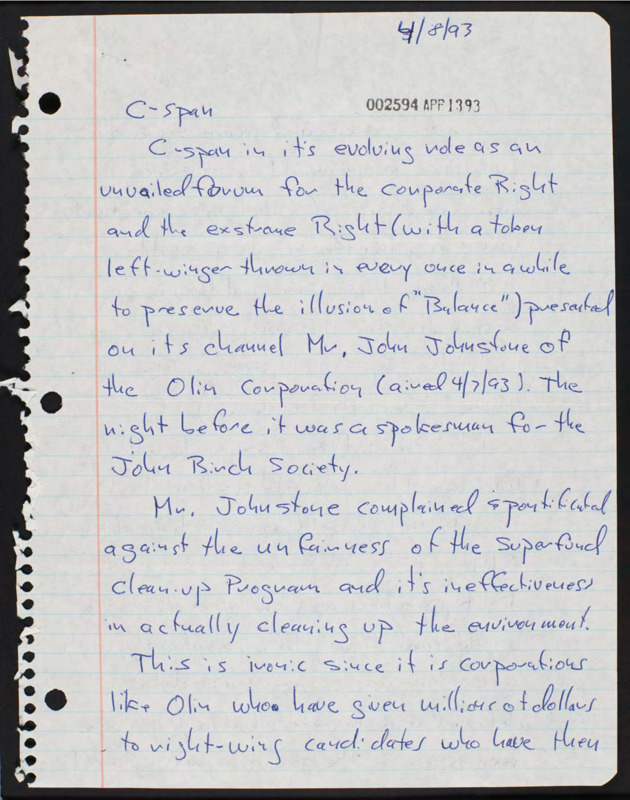 4/8/93
002594 APR 13 93
C-span
C-span in it's evolving role as an
unvailed forum for the corporate Right
and the exstrame Right (with a token
left-winger thrown in every once in a while
to preserve the illusion of "Balance") presented
on its channel Mr. John Johnstone of
the Olin Corporation (aired 4/7/93). The
night before it was a spokesman for the
John Birch Society.
Mr. Johnstone complained & pontificated
against the unfairness of the Superfund
clean-up Program and it's ineffectiveness
in actually cleaning up the environment.
This is ironic since it is corporations
like Olin who have given millions of dollars
to right-wing candidates who have then